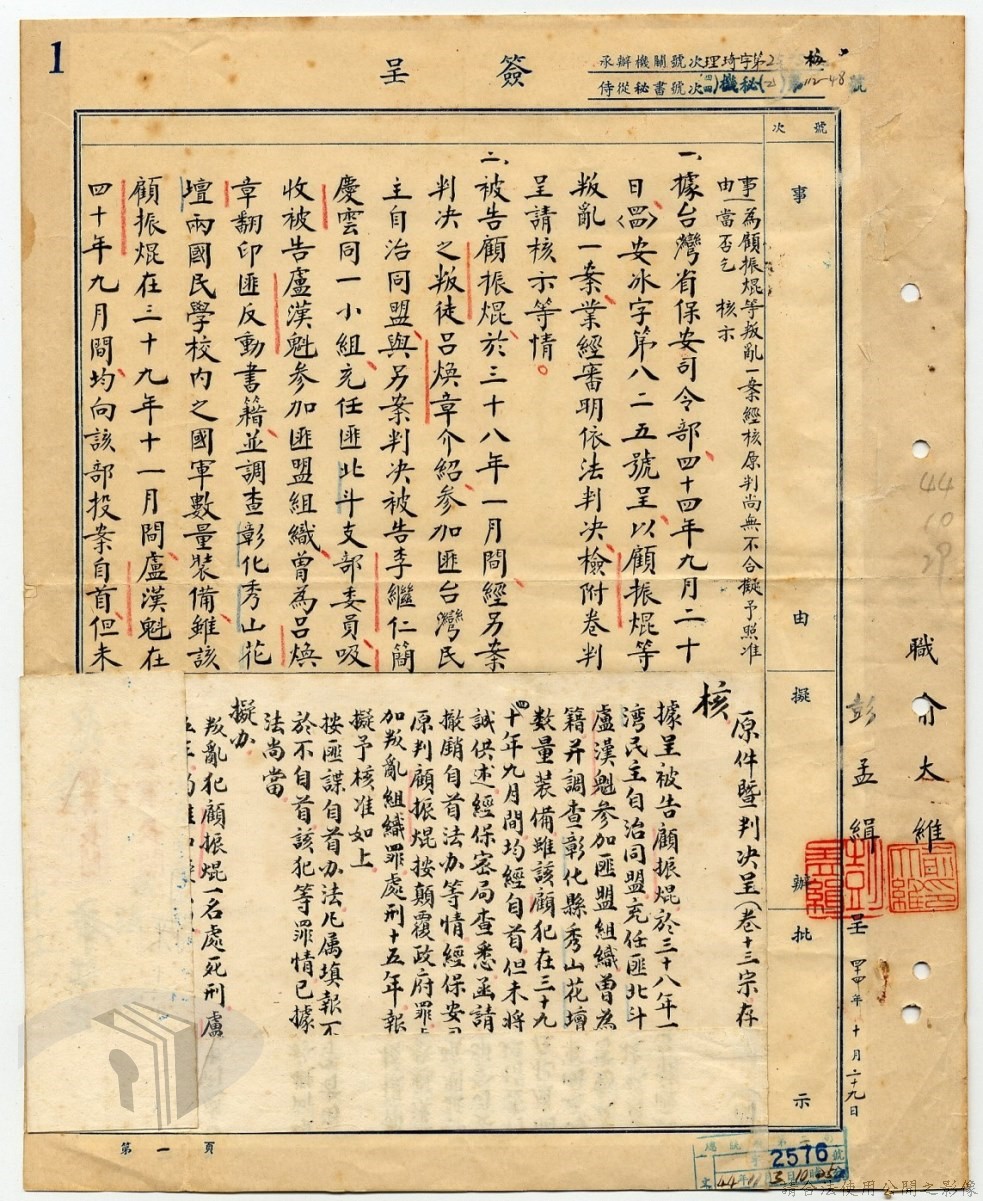 1
簽呈
承辦機關號次理琦字第2
侍從秘書號次(四四)機秘(乙)第112-48號
號次
事由擬辦批示
事由
為顧振焜等叛亂一案經核原判尚無不合擬予照准
當否乞 核示
一、據台灣省保安司令部四十四年九月二十
日(四四)安冰字第八二五號呈以顧振焜等
叛亂一案業經審明依法判決檢附卷判
呈請核示等情。
二、被告顧振焜於三十八年一月間經另案
判決之叛徒呂煥章介紹參加匪台灣民
主自治同盟與另案判決被告李繼仁簡
慶雲同一小組充任匪北斗支部委員吸
收被告盧漢魁參加匪盟組織曾為呂煥
章翻印匪反動書籍並調查彰化秀山花
壇兩國民學校內之國軍數量裝備雖該
顧振焜在三十九年十一月間盧漢魁在
四十年九月間均向該部投案自首但未
原件暨判決呈(卷十三宗存
核
據呈被告顧振焜於三十八年一
湾民主自治同盟充任匪北斗
盧漢魁參加匪盟組織曾為
籍并調查彰化縣秀山花壇
数量装備雖該顧犯在三十九
四十年九月間均經自首但未将
誠供述經保密局查悉函請
撤銷自首法办等情經保安司
原判顧振焜按顛覆政府罪
加叛亂組織罪處刑十五年報
擬予核准如上
按匪諜自首办法凡属填報不
於不自首該犯等罪情已據
法尚當
擬办
叛亂犯顧振焜一名處死刑盧
職俞大維
彭孟緝呈
四四年十月二十九日
44
10
29
第一頁
2576
44
請合法使用公開之影像